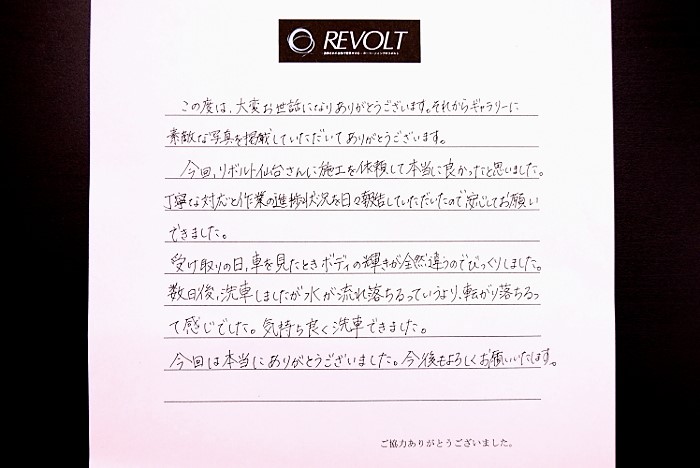 REVOLT
この度は、大変お世話になりありがとうございます。それからギャラリーに
素敵な写真を掲載していただいてありがとうございます。
今回、リボルト仙台さんに施工を依頼して本当に良かったと思いました。
丁寧な対応と作業の進捗状況を日々報告していただいたので安心してお願い
できました。
受け取りの日、車を見たときボディの輝きが全然違うのでびっくりしました。
数日後、洗車しましたが水が流れ落ちるっていうより、転がり落ちるっ
て感じでした。気持ち良く洗車できました。
今回は本当にありがとうございました。今後もよろしくお願いいたします。
ご協力ありがとうございました。